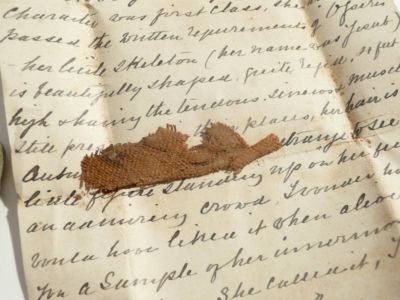 character was first class, she
passed the written requirements of
- her little skeleton (her name was
is beautifully shaped, quite rigid, 4 feet
high showing the tendons, sinews & muscle
still pre the places, her hair is
Aubu strange to see
little figure standing up on her fee
an admiring crowd. I wonder h
would have liked it when alive
you a sample of her innermo
She called it, I